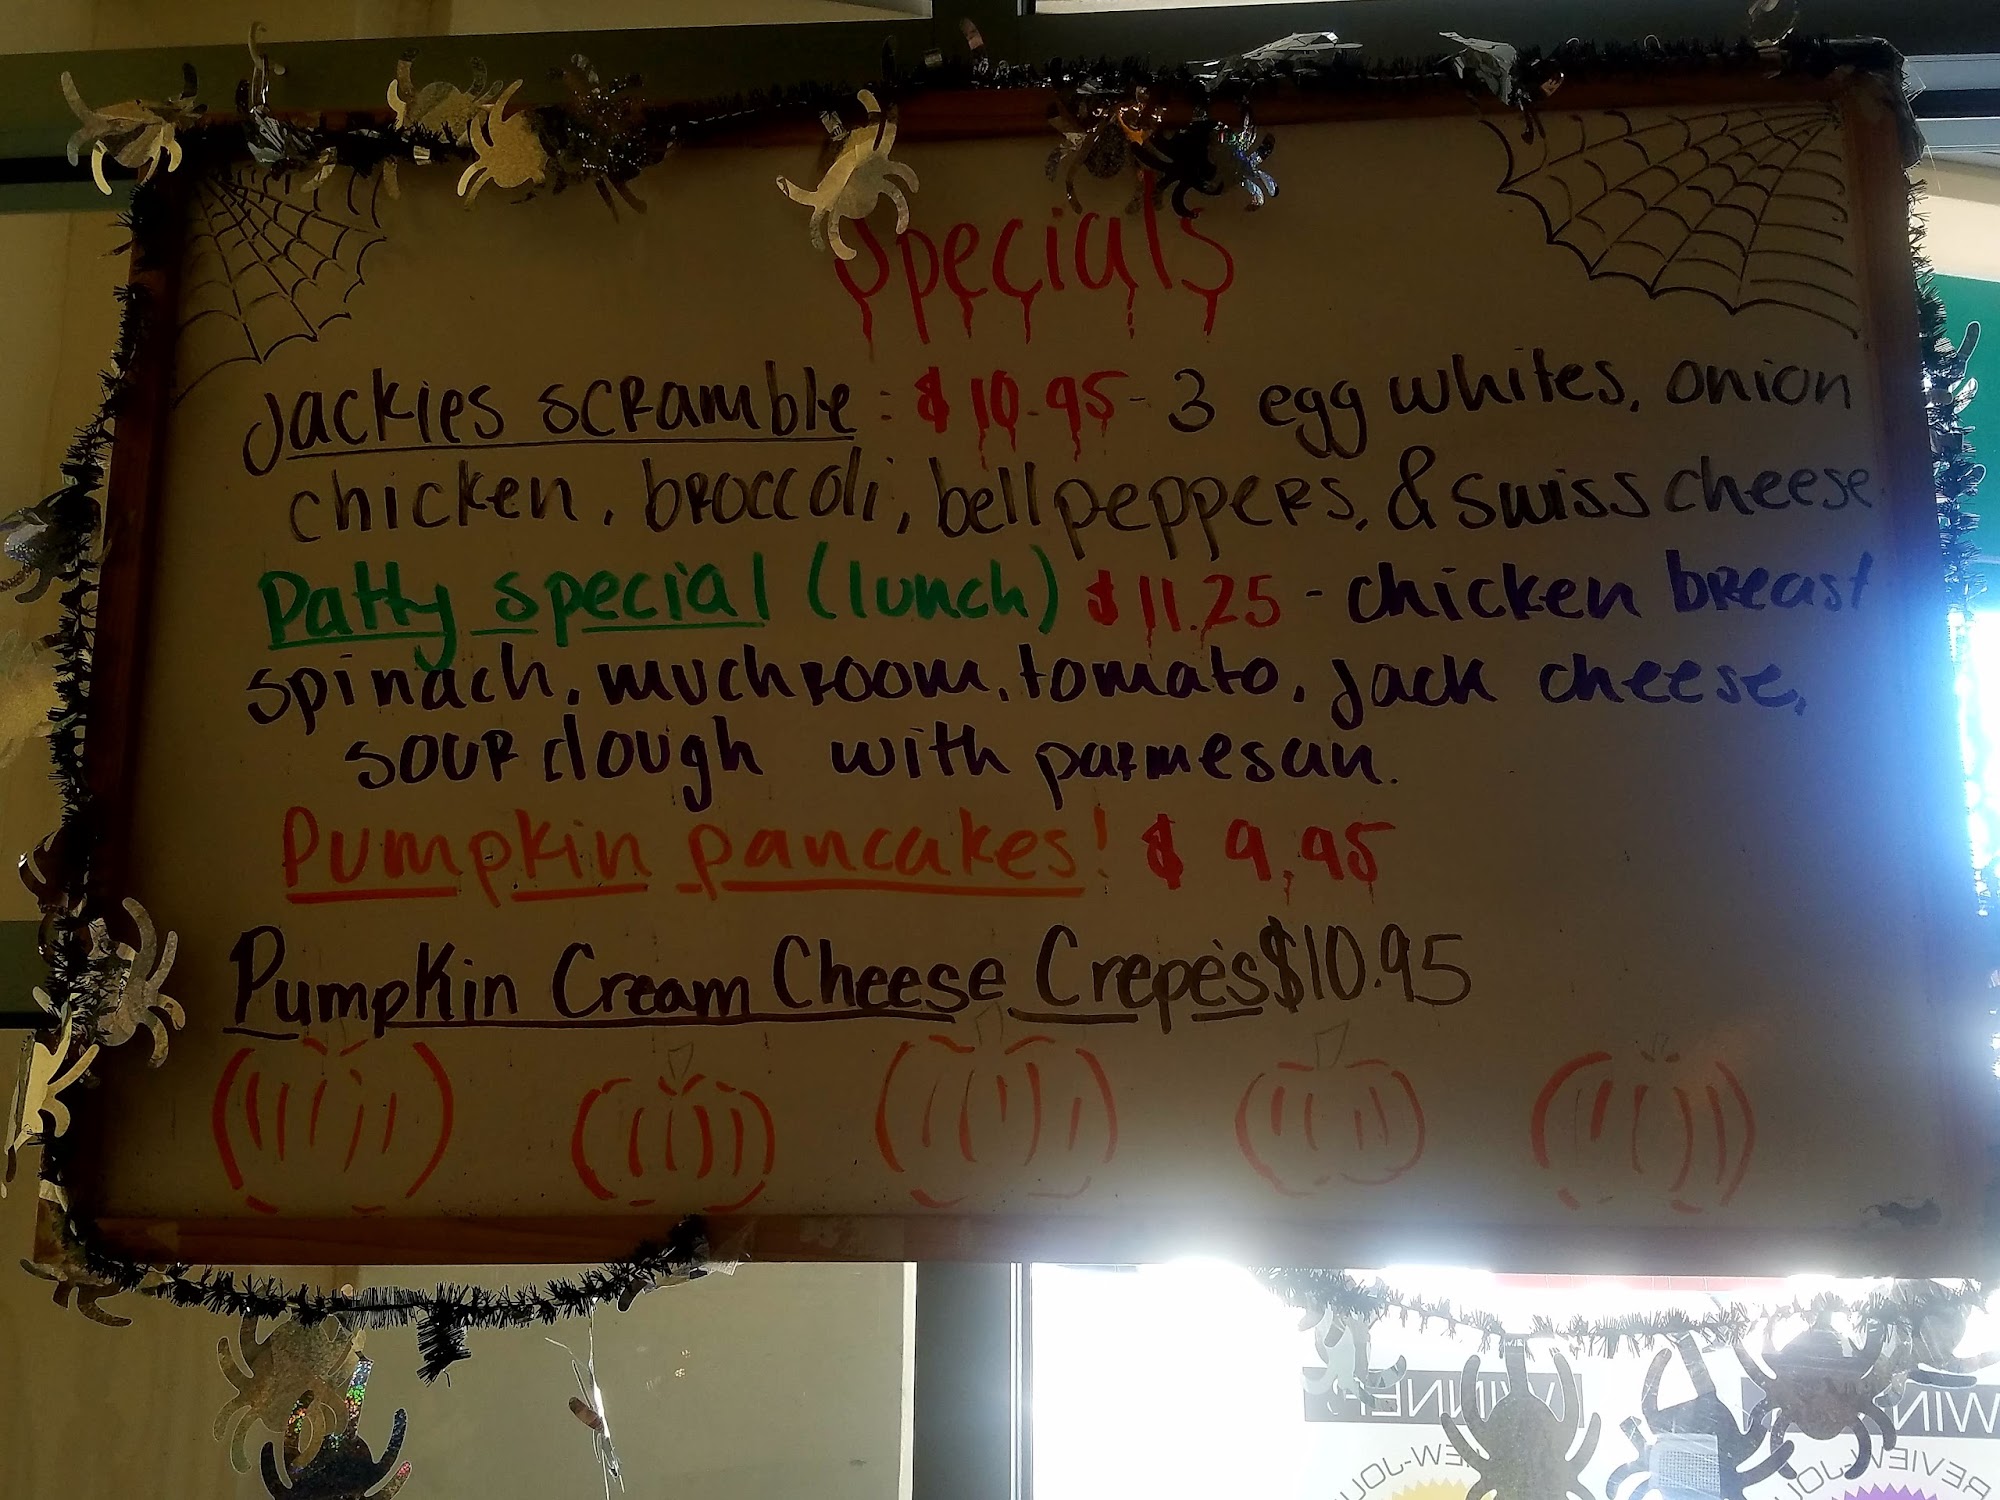 Specials
Jackies scramble: $10.95 - 3 egg whites, onion
chicken, broccoli, bell peppers, & swiss cheese.
Patty special (lunch) $11.25 - chicken breast
spinach, muchroom, tomato, jack cheese,
sour dough with parmesan.
Pumpkin pancakes! $ 9.95
Pumpkin Cream Cheese Crepès $10.95
WINNER
REVIEW-JOU